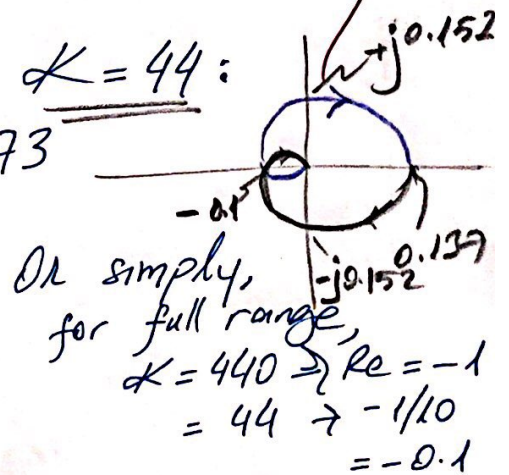 +j0.152
K = 44 :
73
- 0.1
0.137
-j0.152
Or simply,
for full range,
K = 440 ⇒ Re = -1
= 44 → -1/10
= -0.1